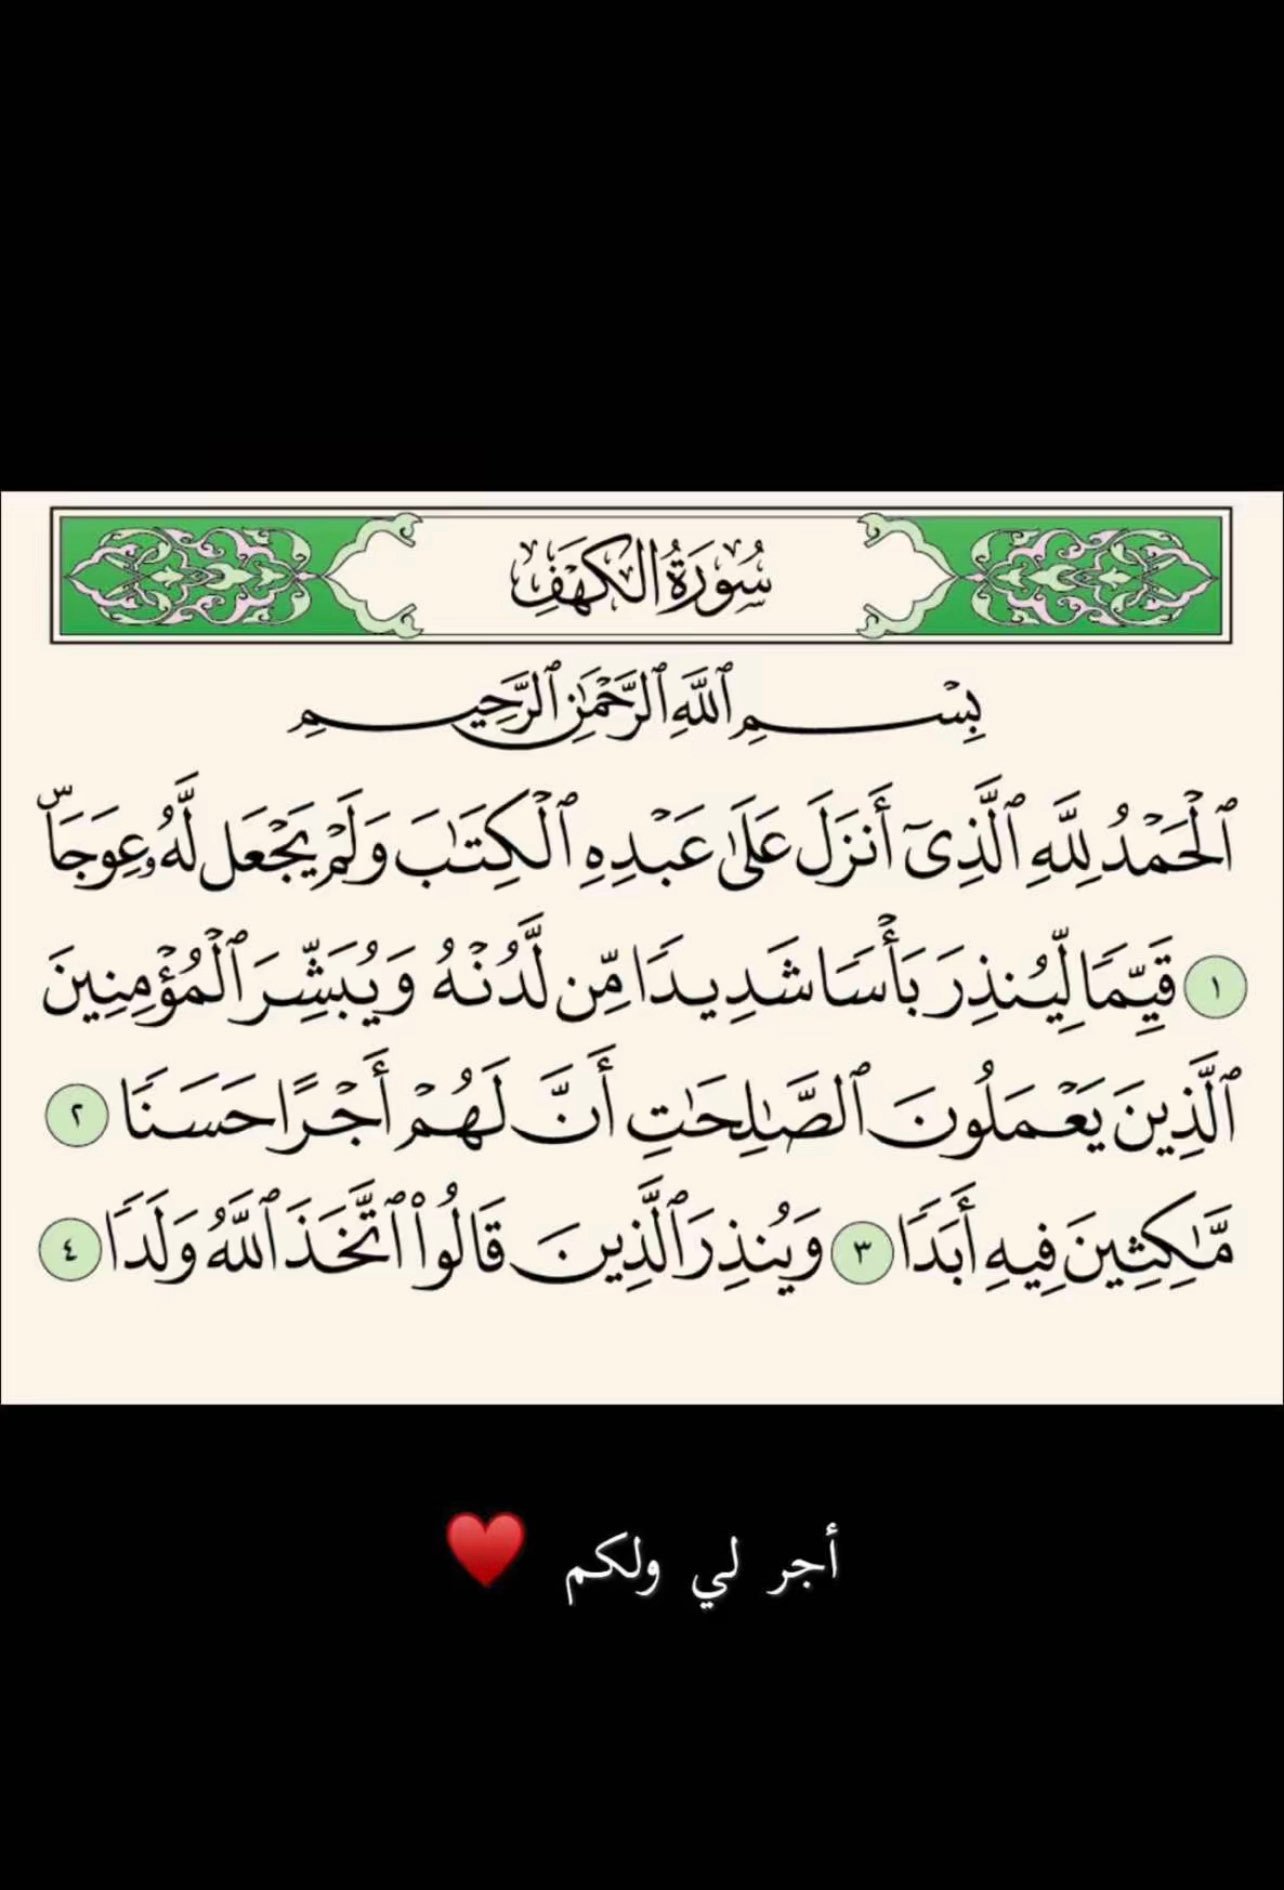 سُورَةُ الكَهۡفِ
بِسۡمِ ٱللَّهِ ٱلرَّحۡمَٰنِ ٱلرَّحِيمِ
ٱلۡحَمۡدُ لِلَّهِ ٱلَّذِيٓ أَنزَلَ عَلَىٰ عَبۡدِهِ ٱلۡكِتَٰبَ وَلَمۡ يَجۡعَل لَّهُۥ عِوَجَاۜ
١ قَيِّمٗا لِّيُنذِرَ بَأۡسٗا شَدِيدٗا مِّن لَّدُنۡهُ وَيُبَشِّرَ ٱلۡمُؤۡمِنِينَ
ٱلَّذِينَ يَعۡمَلُونَ ٱلصَّٰلِحَٰتِ أَنَّ لَهُمۡ أَجۡرًا حَسَنٗا ٢
مَّٰكِثِينَ فِيهِ أَبَدٗا ٣ وَيُنذِرَ ٱلَّذِينَ قَالُواْ ٱتَّخَذَ ٱللَّهُ وَلَدٗا ٤
أجر لي ولكم ♥️